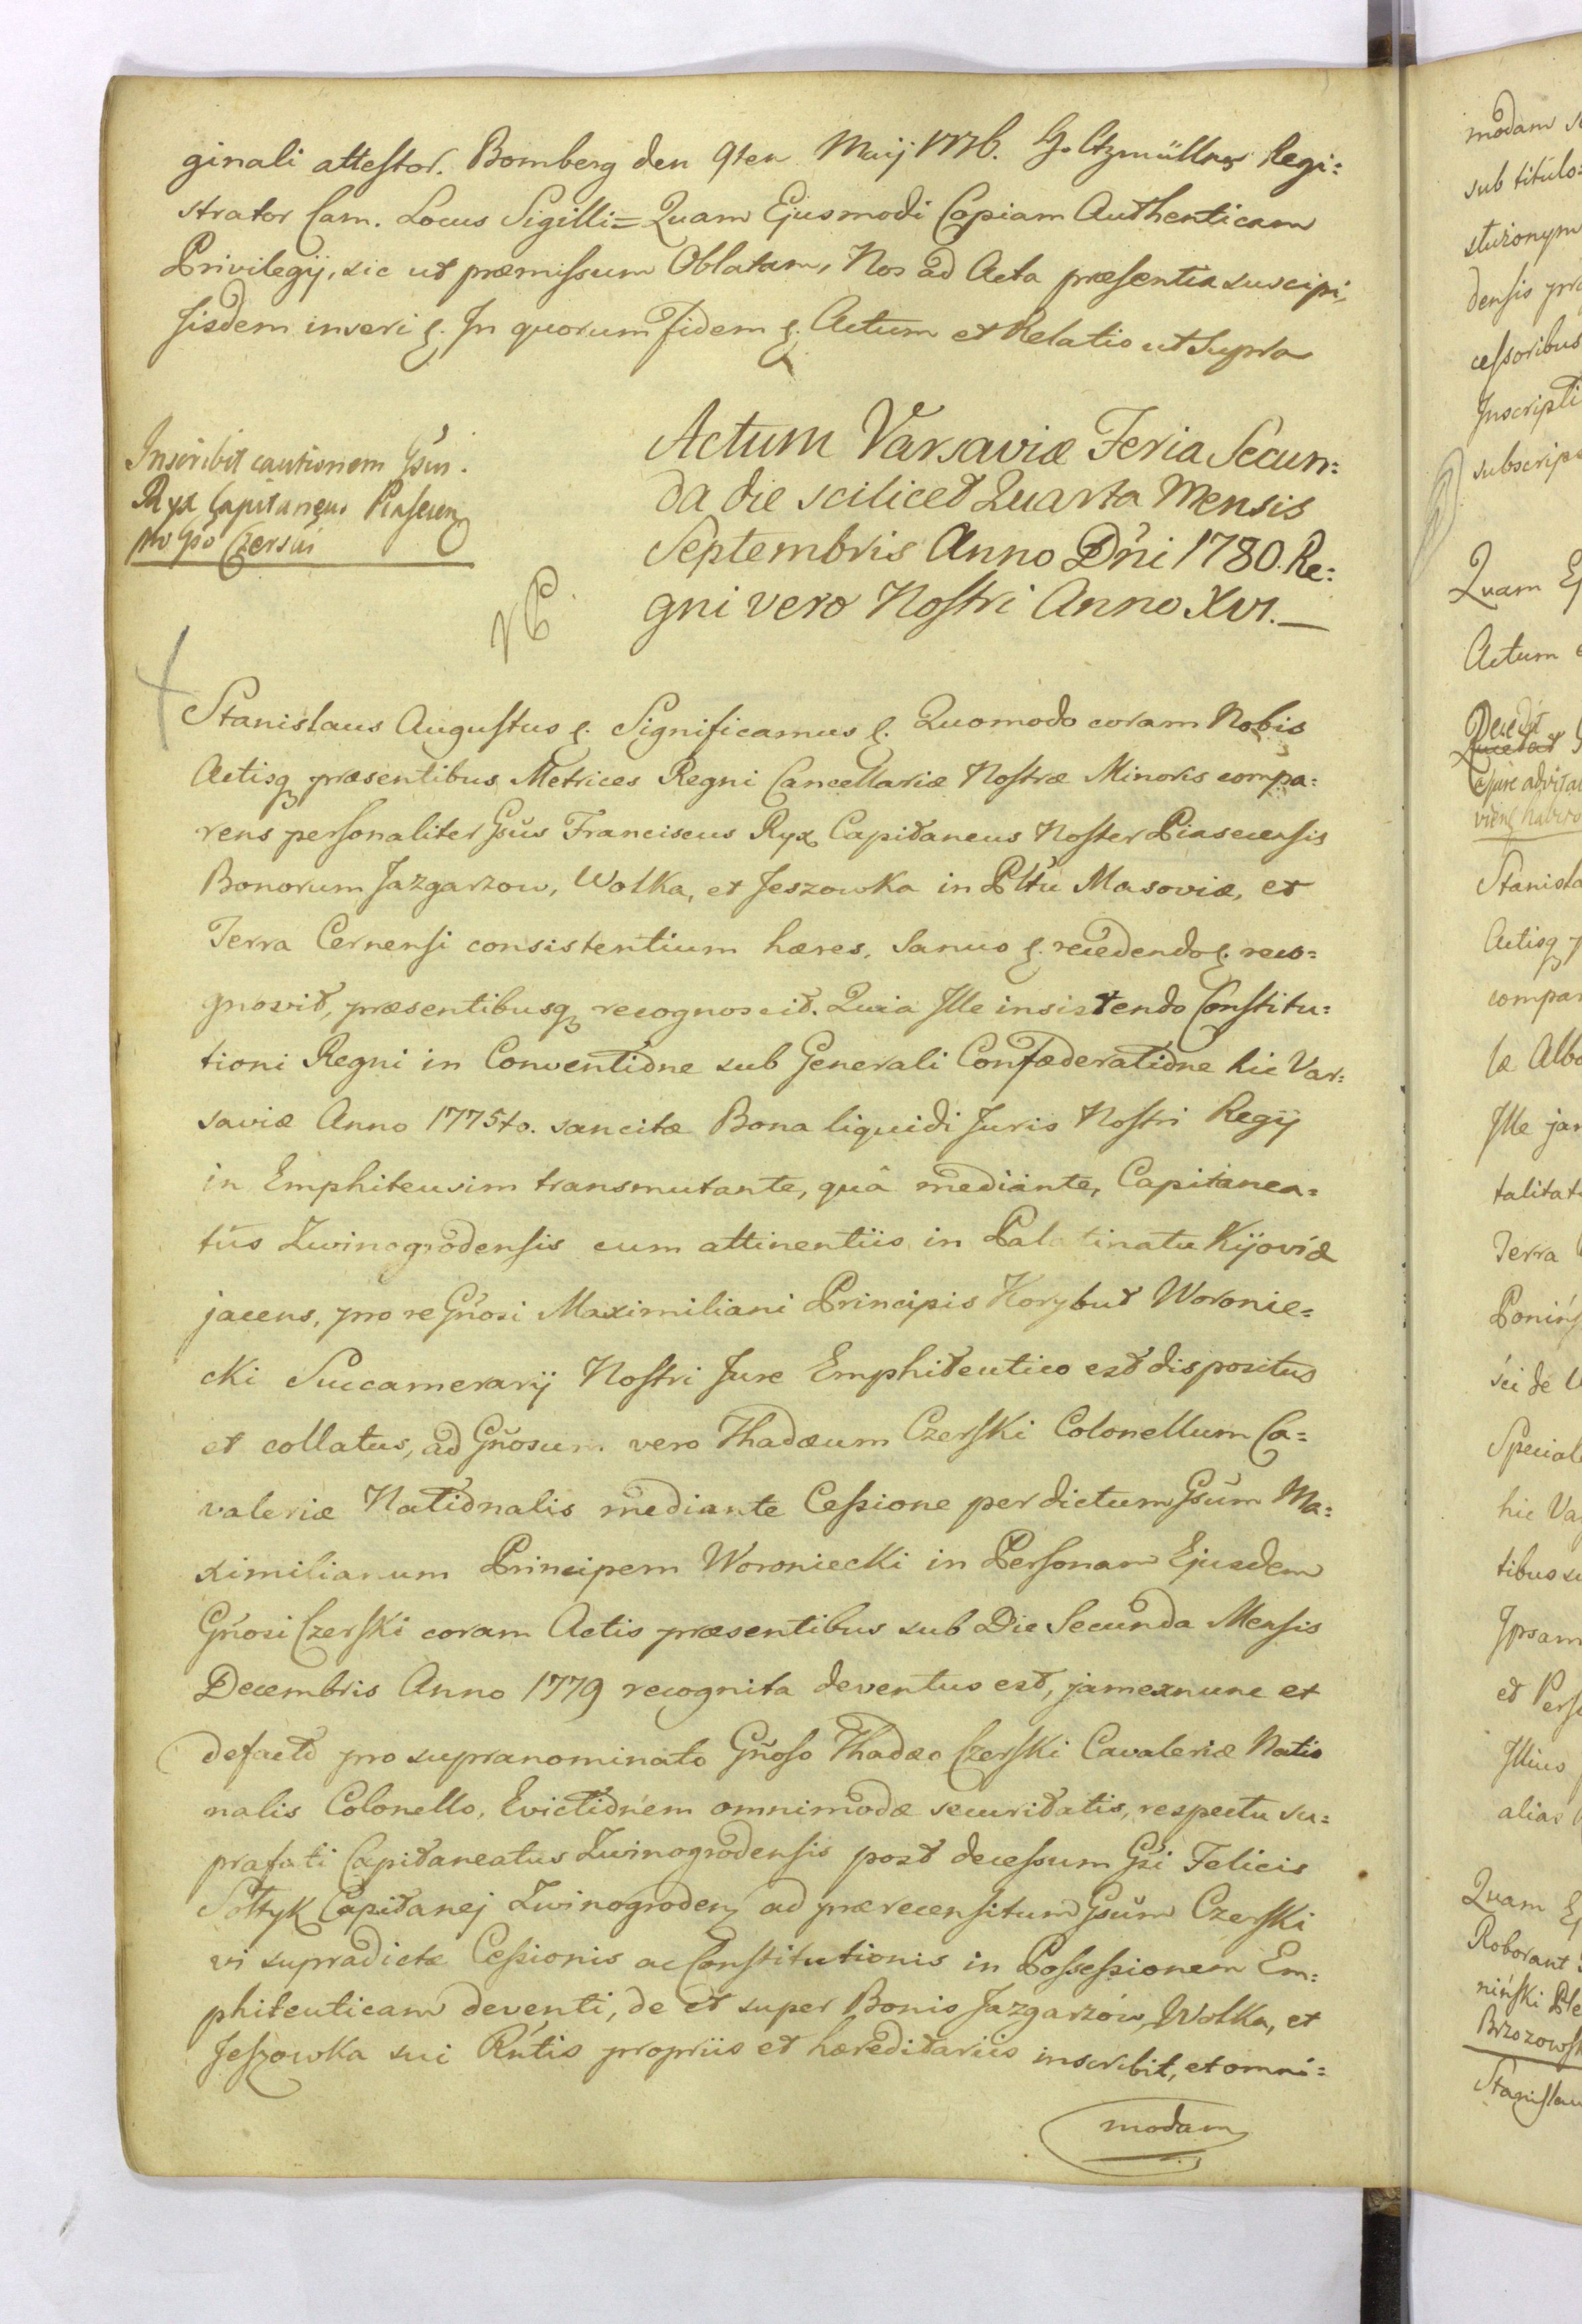 ginali attestor. Bomberg den 9ten Maij 1776. Holtzmüllner Regi:
strator Cam. Locus Sigilli = Quam Ejusmodi Copiam Authenticam
Privilegij, sic ut præmissum Oblatam, Nos ad Acta præsentia suscipi,
Iisdem inseri &. In quorum Fidem &. Actum et Relatio ut Supra
Inscribit cautionem Gsūs.
Ryx Capitaneus Piasecen
Mo Gso Czerski
Actum Varsaviæ Feria Secun:
da die scilicet Quarta Mensis
Septembris Anno Dńi 1780. Re:
gni vero Nostri Anno XVI.—
Stanislaus Augustus &. Significamus &. Quomodo coram Nobis
Actisq præsentibus Metrices Regni Cancellariæ Nostræ Minoris compa:
rens personaliter Gsūs Franciscus Ryx Capitaneus Noster Piasecensis
Bonorum Jazgarzow, Wolka, et Jeszowka in Pltū Masoviæ, et
Terra Cernensi consistentium hæres, Sanus &. recedendo &. reco:
gnovit, præsentibusq recognoscit. Quia Ille insistendo Constitu:
tioni Regni in Conventiōne sub Generali Confæderatiōne hic Var:
saviæ Anno 1775to. sancitæ Bona liquidi Juris Nostri Regij
in Emphiteusim transmutante, quâ mediante, Capitanea:
tūs Zwinogrodensis cum attinentiis in Palatinatu Kijoviæ
jacens, pro re Gńosi Maximiliani Principis Korybut Woronie:
cki Succamerarij Nostri Jure Emphiteutico est dispositus
et collatus, ad Gńosum vero Thadæum Czerski Colonellum Ca:
valeriæ Natiōnalis mediante Cessione per dictum Gsūm Ma:
ximilianum Principem Woroniecki in Personam Ejusdem
Gńosi Czerski coram Actis præsentibus sub Die Secunda Mensis
Decembris Anno 1779 recognita deventus est, jam exnunc et
defacto pro supranominato Gńoso Thadæo Czerski Cavaleriæ Natio
nalis Colonello, Evictiōnem omnimodæ securitatis, respectu su:
prafati Capitaneatus Zwinogrodensis post decessum Gsi Felicis
Sołtyk Capitanej Zwinogroden ad prærecensitum Gsūm Czerski
vi supradictæ Cessionis ac Constitutionis in Possessionem Em:
phiteuticam deventi, de et super Bonis Jazgarzów, Wolka, et
Jeszowka sui Rńtis propriis et hæreditariis inscribit, et omni:
modam
modam
sub titulo
densis
cessoribus
Inscripti
Quam
Actum
Stanisla
Actisq
compar
Ille jam
talitat
Terra
Ponińs
Special
hic Va
tibus
Ipsam
et Pers
Illius
alias
Quam
Roborant
niński
Brzozows
Stanislau